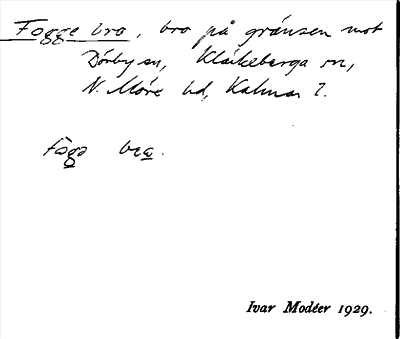 Fogge bro, bro på gränsen mot
Dörby sn, Kläckeberga sn,
N. Möre hd, Kalmar l.
fògə bra.
Ivar Modéer 1929.